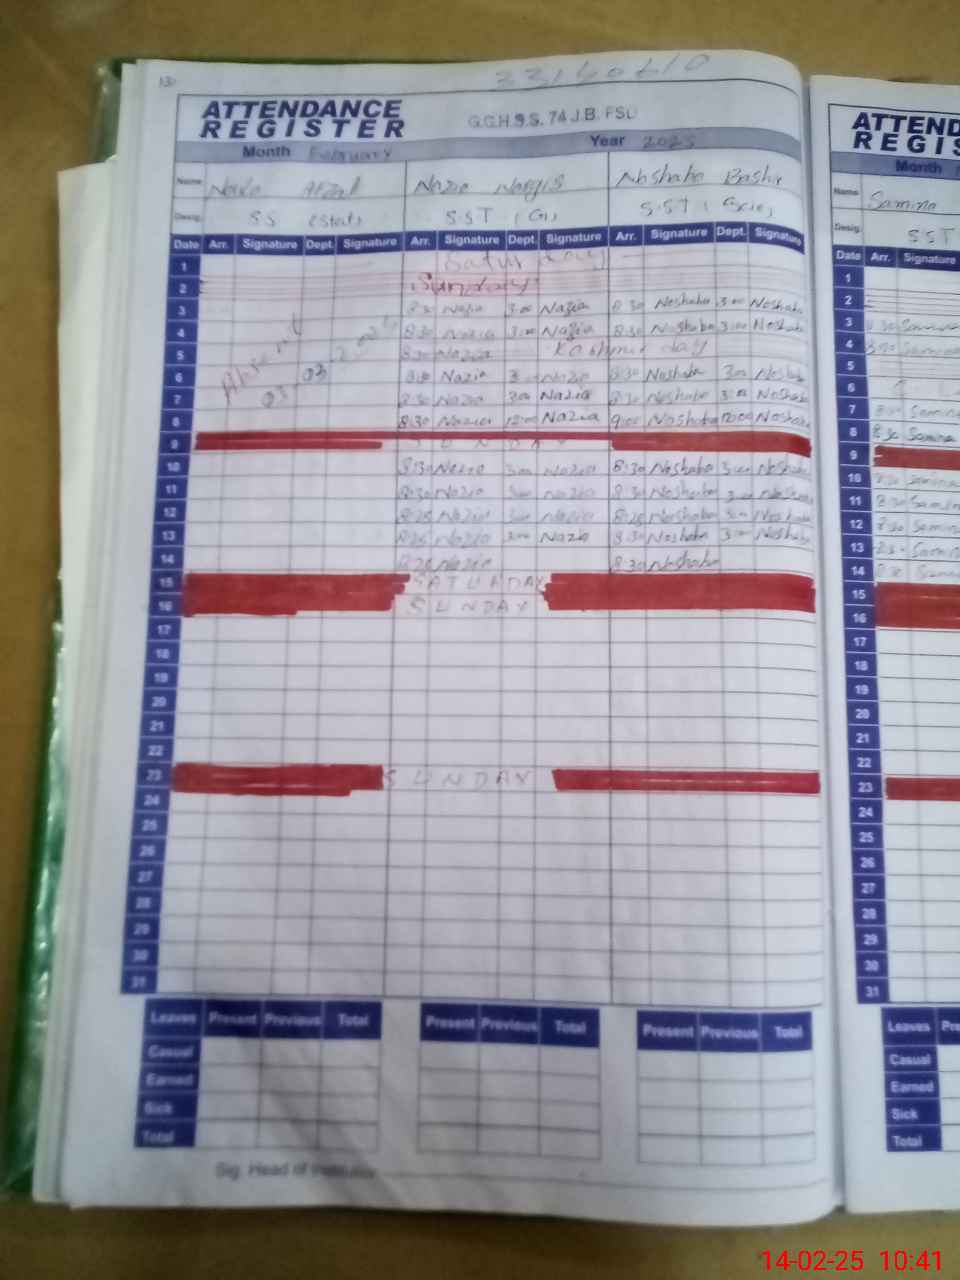 130 33140610
ATTENDANCE REGISTER G.G.H.S.S. 74 J.B. FSD
Month February Year 2025
Name Nazia Nargis Noshaba Bashir
Desig. SS (Stat) SST (G) S.S.T (Scie)
Date Arr. Signature Dept. Signature Arr. Signature Dept. Signature Arr. Signature Dept. Signature
1 Saturday
2 Sunday
3 8:30 Nazia 3:00 Nazia 8:30 Noshaba 3:00 Noshaba
4 8:30 Nazia 3:00 Nazia 8:30 Noshaba 3:00 Noshaba
5 8:30 Nazia Kashmir day
6 8:30 Nazia 3:00 Nazia 8:30 Noshaba 3:00 Noshaba
7 8:30 Nazia 3:00 Nazia 8:30 Noshaba 3:00 Noshaba
8 8:30 Nazia 12:00 Nazia 9:00 Noshaba 12:00 Noshaba
Absent
9 SUNDAY
10 8:30 Nazia 3:00 Nazia 8:30 Noshaba 3:00 Noshaba
11 8:30 Nazia 3:00 Nazia 8:30 Noshaba 3:00 Noshaba
12 8:25 Nazia 3:00 Nazia 8:25 Noshaba 3:00 Noshaba
13 8:25 Nazia 3:00 Nazia 8:30 Noshaba 3:00 Noshaba
14 8:25 Nazia 8:30 Noshaba
15 SATUDAY
16 SUNDAY
17
18
19
20
21
22
23 SUNDAY
24
25
26
27
28
29
30
31
Leaves Present Previous Total Present Previous Total Present Previous Total
Casual
Earned
Sick
Total
Sig. Head of
ATTEND
REGIS
Month
Name Samina
Desig. SST
Date Arr. Signature
1
2
3 Samina
4 Samina
5
6
7 Samina
8 8:30 Samina
9
10 Samina
11 8:30 Samina
12 Samina
13 Samina
14 Samina
15
16
17
18
19
20
21
22
23
24
25
26
27
28
29
30
31
Leaves Pre
Casual
Earned
Sick
Total
14-02-25 10:41